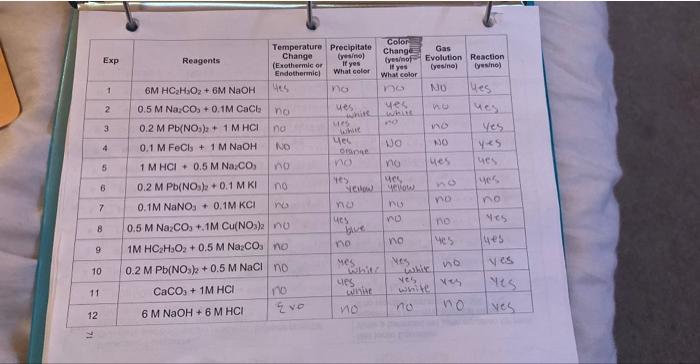 Exp Reagents Temperature Change (Exothermic or Endothermic) Precipitate (yes/no) If yes What color Color Change (yes/no) If yes What color Gas Evolution (yes/no) Reaction (yes/no)
1 6M HC₂H₃O₂ + 6M NaOH Yes no no NO yes
2 0.5 M Na₂CO₃ + 0.1M CaCl₂ no yes white yes white no yes
3 0.2 M Pb(NO₃)₂ + 1 M HCl no yes white no no yes
4 0.1 M FeCl₃ + 1 M NaOH NO yes orange NO NO yes
5 1 M HCl + 0.5 M Na₂CO₃ no no no yes yes
6 0.2 M Pb(NO₃)₂ + 0.1 M KI no yes yellow yes yellow no yes
7 0.1M NaNO₃ + 0.1M KCl no no no no no
8 0.5 M Na₂CO₃ +.1M Cu(NO₃)₂ no yes blue no no yes
9 1M HC₂H₃O₂ + 0.5 M Na₂CO₃ no no no yes yes
10 0.2 M Pb(NO₃)₂ + 0.5 M NaCl no yes white yes white no yes
11 CaCO₃ + 1M HCl no yes white yes white yes yes
12 6 M NaOH + 6 M HCl no no no yes
71